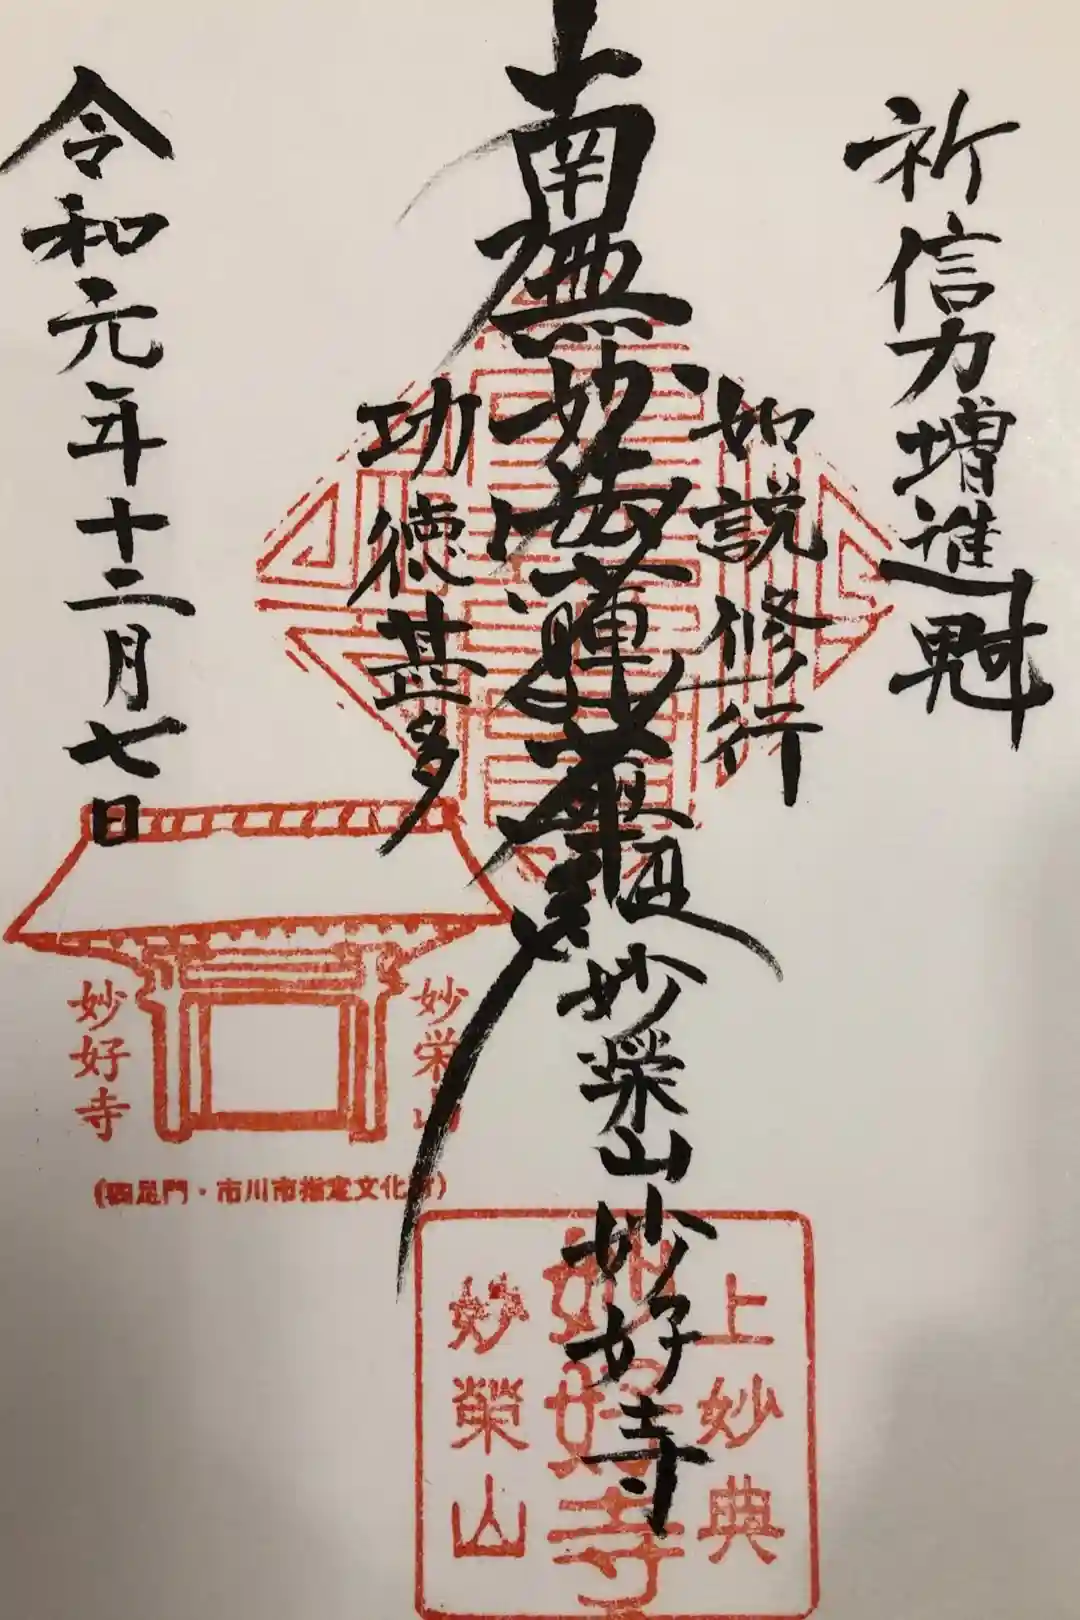 祈信力増進
如説修行
南無妙法蓮華経
妙栄山妙好寺
功徳甚多
令和元年十二月七日
妙栄山
妙好寺
(四足門・市川市指定文化財)
上妙典
妙好寺
妙榮山